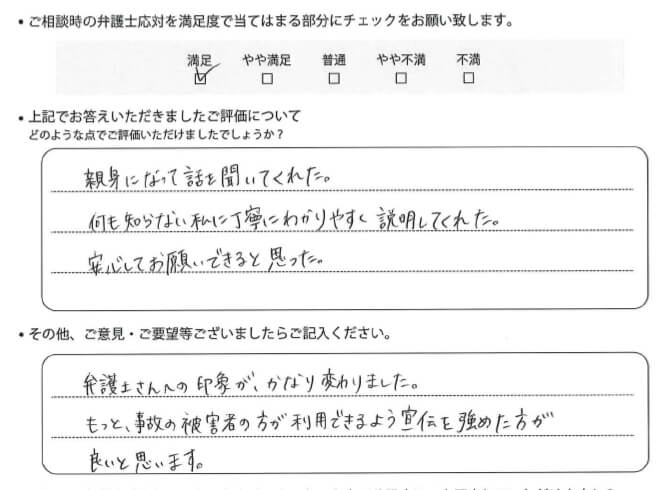 • ご相談時の弁護士応対を満足度で当てはまる部分にチェックをお願い致します。
満足 やや満足 普通 やや不満 不満
• 上記でお答えいただきましたご評価について
どのような点でご評価いただけましたでしょうか？
親身になって話を聞いてくれた。
何も知らない私に丁寧にわかりやすく説明してくれた。
安心してお願いできると思った。
• その他、ご意見・ご要望等ございましたらご記入ください。
弁護士さんへの印象が、かなり変わりました。
もっと、事故の被害者の方が利用できるよう宣伝を強めた方が
良いと思います。